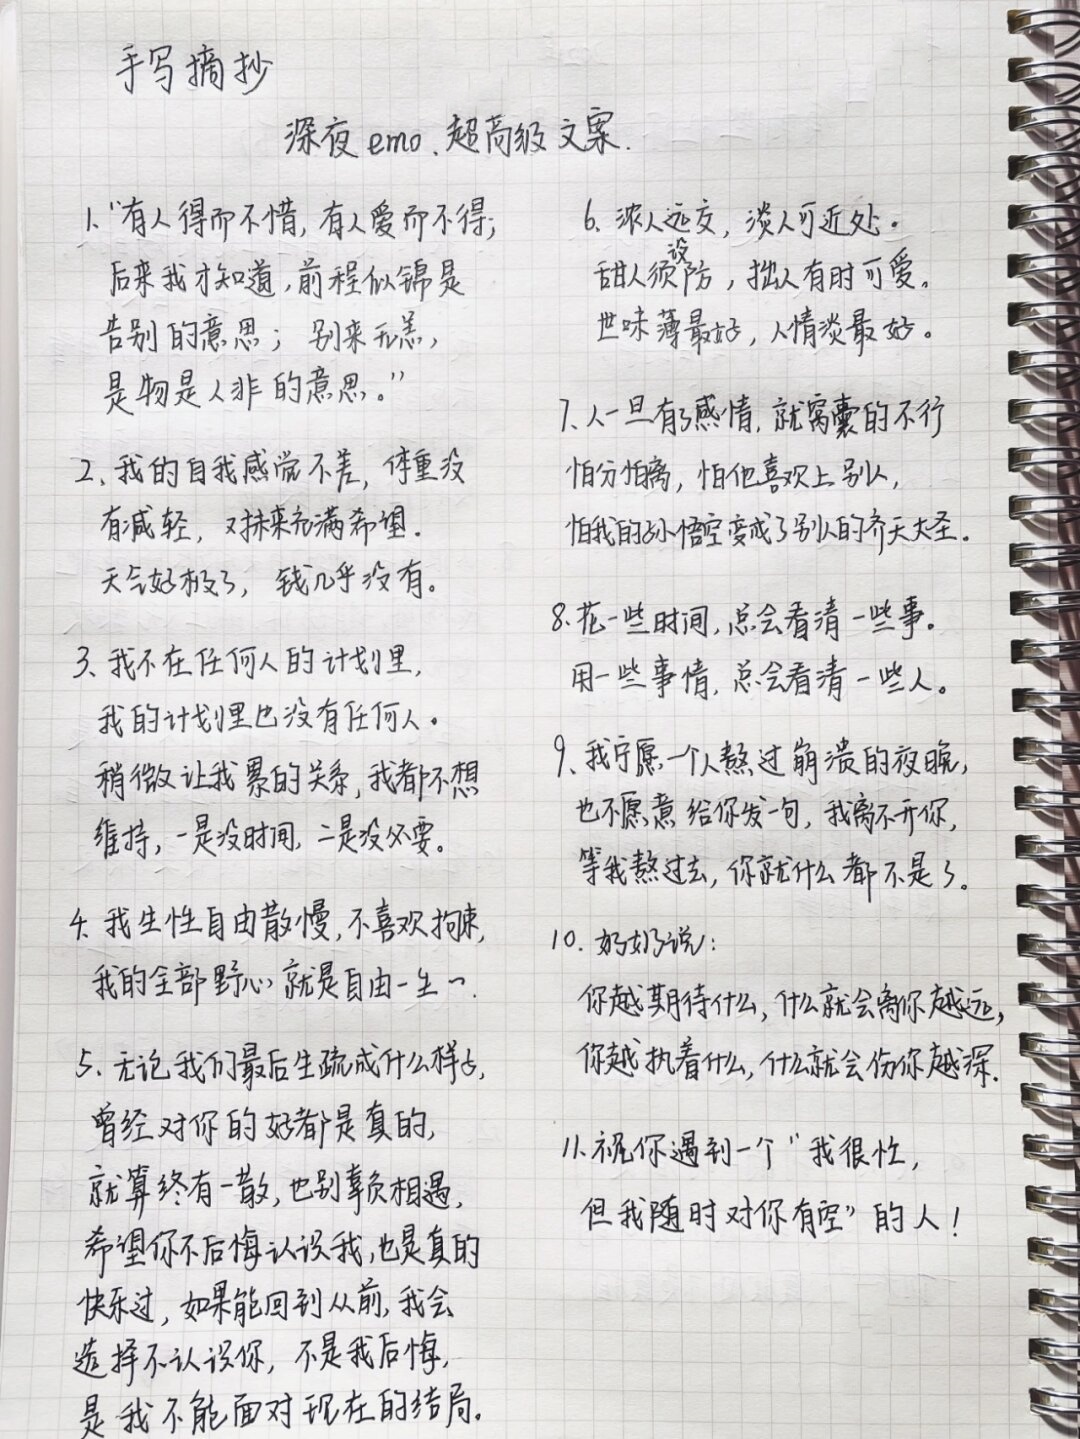 手写摘抄
深夜emo、超高级文案.
1、“有人得而不惜,有人爱而不得;
后来我才知道,前程似锦是
告别的意思; 别来无恙,
是物是人非的意思。”
2、我的自我感觉不差,体重没
有减轻, 对未来充满希望.
天气好极了, 钱几乎没有。
3、我不在任何人的计划里,
我的计划里也没有任何人。
稍微让我累的关系,我都不想
维持,一是没时间,二是没必要。
4、我生性自由散慢,不喜欢拘束,
我的全部野心就是自由一生~.
5、无论我们最后生疏成什么样子,
曾经对你的好都是真的,
就算终有一散,也别辜负相遇,
希望你不后悔认识我,也是真的
快乐过,如果能回到从前,我会
选择不认识你,不是我后悔,
是我不能面对现在的结局。
6、浓人远交,淡人可近处。
甜人须设防,拙人有时可爱。
世味薄最好,人情淡最好。
7、人一旦有了感情,就窝囊的不行
怕分怕离,怕他喜欢上别人,
怕我的孙悟空变成了别人的齐天大圣。
8、花一些时间,总会看清一些事。
用一些事情,总会看清一些人。
9、我宁愿一个人熬过崩溃的夜晚,
也不愿意给你发一句,我离不开你,
等我熬过去,你就什么都不是了。
10、奶奶说:
你越期待什么,什么就会离你越远,
你越执着什么,什么就会伤你越深.
11、祝你遇到一个“我很忙,
但我随时对你有空”的人!